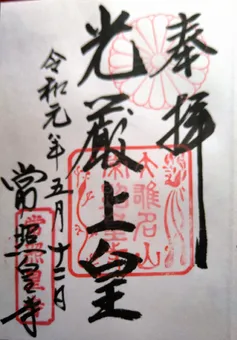 奉拝
光厳上皇
令和元年五月十二日
常照皇寺
大雄名山